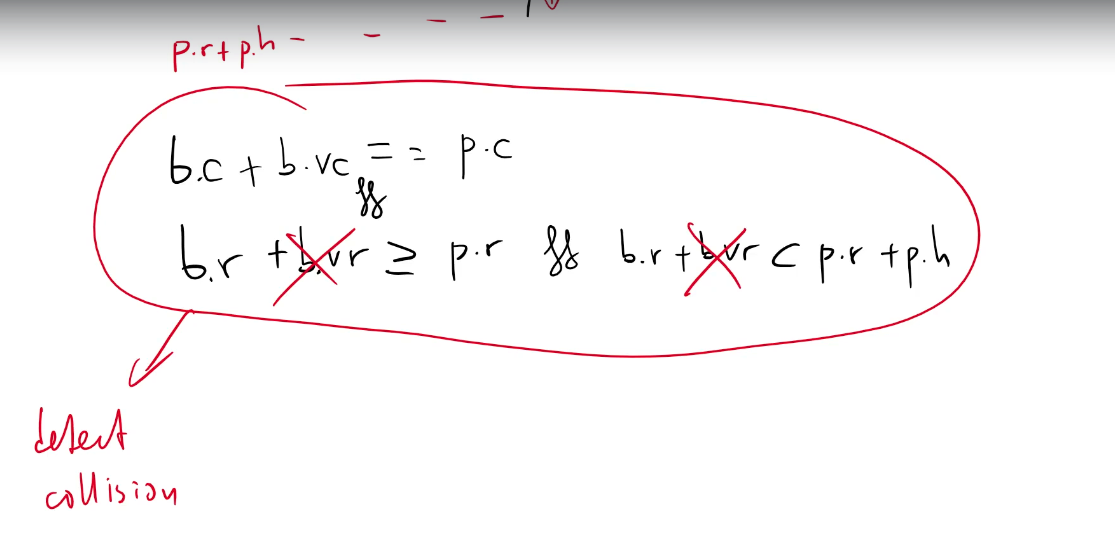 p.r+p.h -
b.c + b.vc == p.c
&&
b.r + b.vr ≥ p.r && b.r + b.vr < p.r + p.h
detect
collision